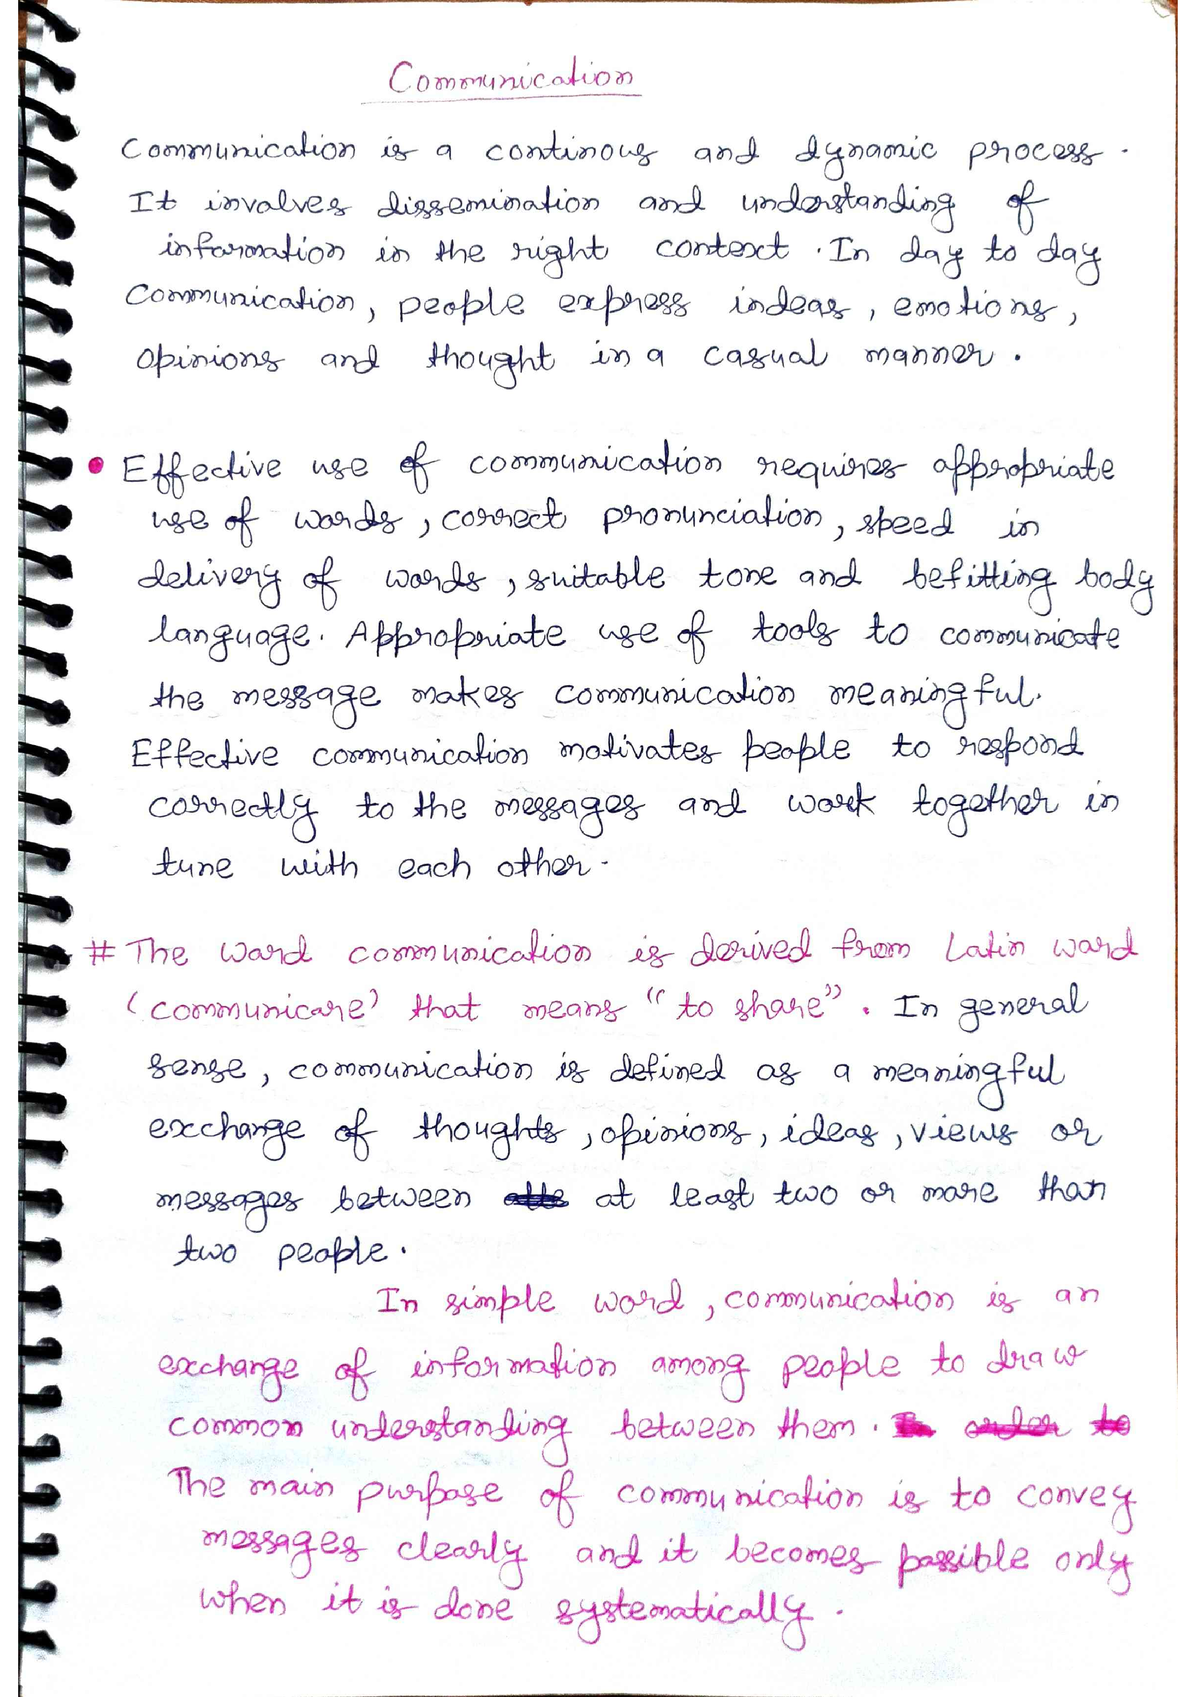 Communication
Communication is a continous and dynamic process.
It involves dissemination and understanding of
information in the right context. In day to day
Communication, people express indeas, emotions,
opinions and thought in a casual manner.
• Effective use of communication requires appropriate
use of words, correct pronunciation, speed in
delivery of words, suitable tone and befitting body
language. Appropriate use of tools to communicate
the message makes communication meaningful.
Effective communication motivates people to respond
correctly to the messages and work together in
tune with each other.
# The word communication is derived from Latin word
(communicare) that means "to share". In general
sense, communication is defined as a meaningful
exchange of thoughts, opinions, ideas, views or
messages between at least two or more than
two people.
In simple word, communication is an
exchange of information among people to draw
common understanding between them. In order to
The main purpose of communication is to convey
messages clearly and it becomes possible only
when it is done systematically.